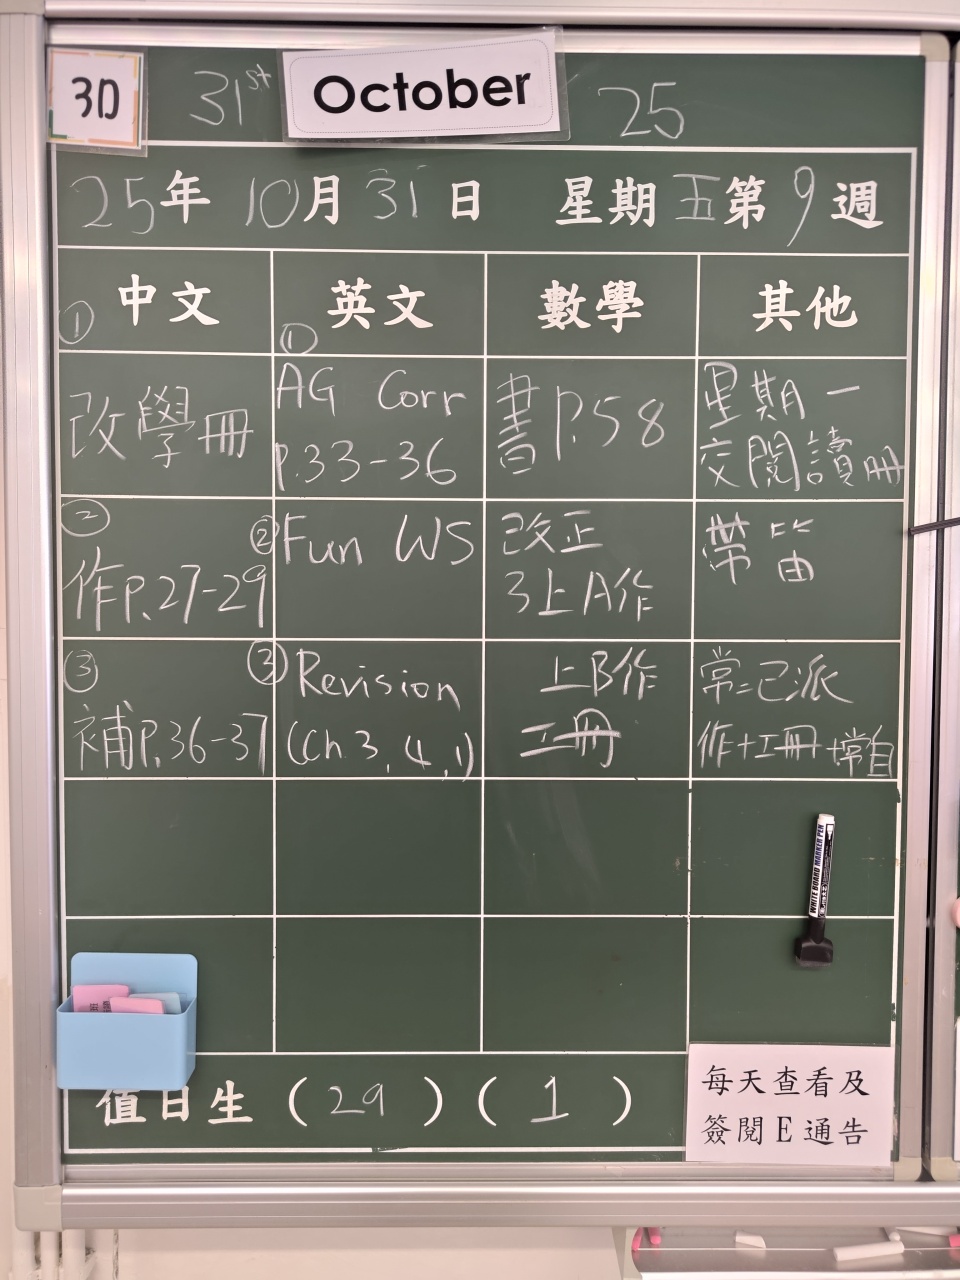 3D
31st October 25
25年10月31日 星期五第9週
中文 英文 數學 其他
① 改學冊
② 作P.27-29
③ 補P.36-37
① AG Corr
P.33-36
② Fun WS
③ Revision
(Ch 3, 4, 1)
書P.58
改正
3上A作
上B作
工冊
星期一
交閱讀冊
帶笛
常=已派
作+工冊+常自
值日生(29)(1)
每天查看及
簽閱E通告
WHITE BOARD MARKER PEN